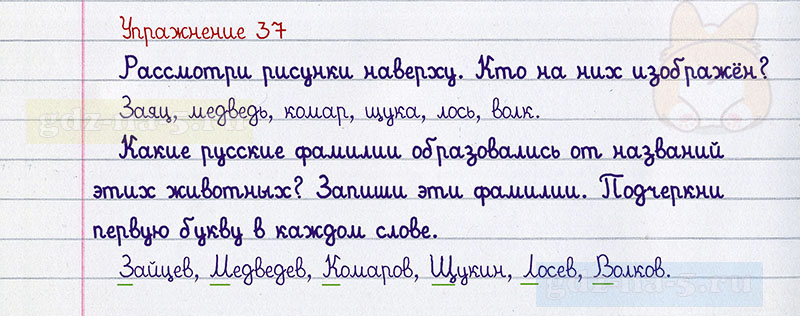 Упражнение 37
Рассмотри рисунки наверху. Кто на них изображён?
Заяц, медведь, комар, щука, лось, волк.
Какие русские фамилии образовались от названий
этих животных? Запиши эти фамилии. Подчеркни
первую букву в каждом слове.
Зайцев, Медведев, Комаров, Щукин, Лосев, Волков.
gdz-na-5.ru
gdz-na-5.ru